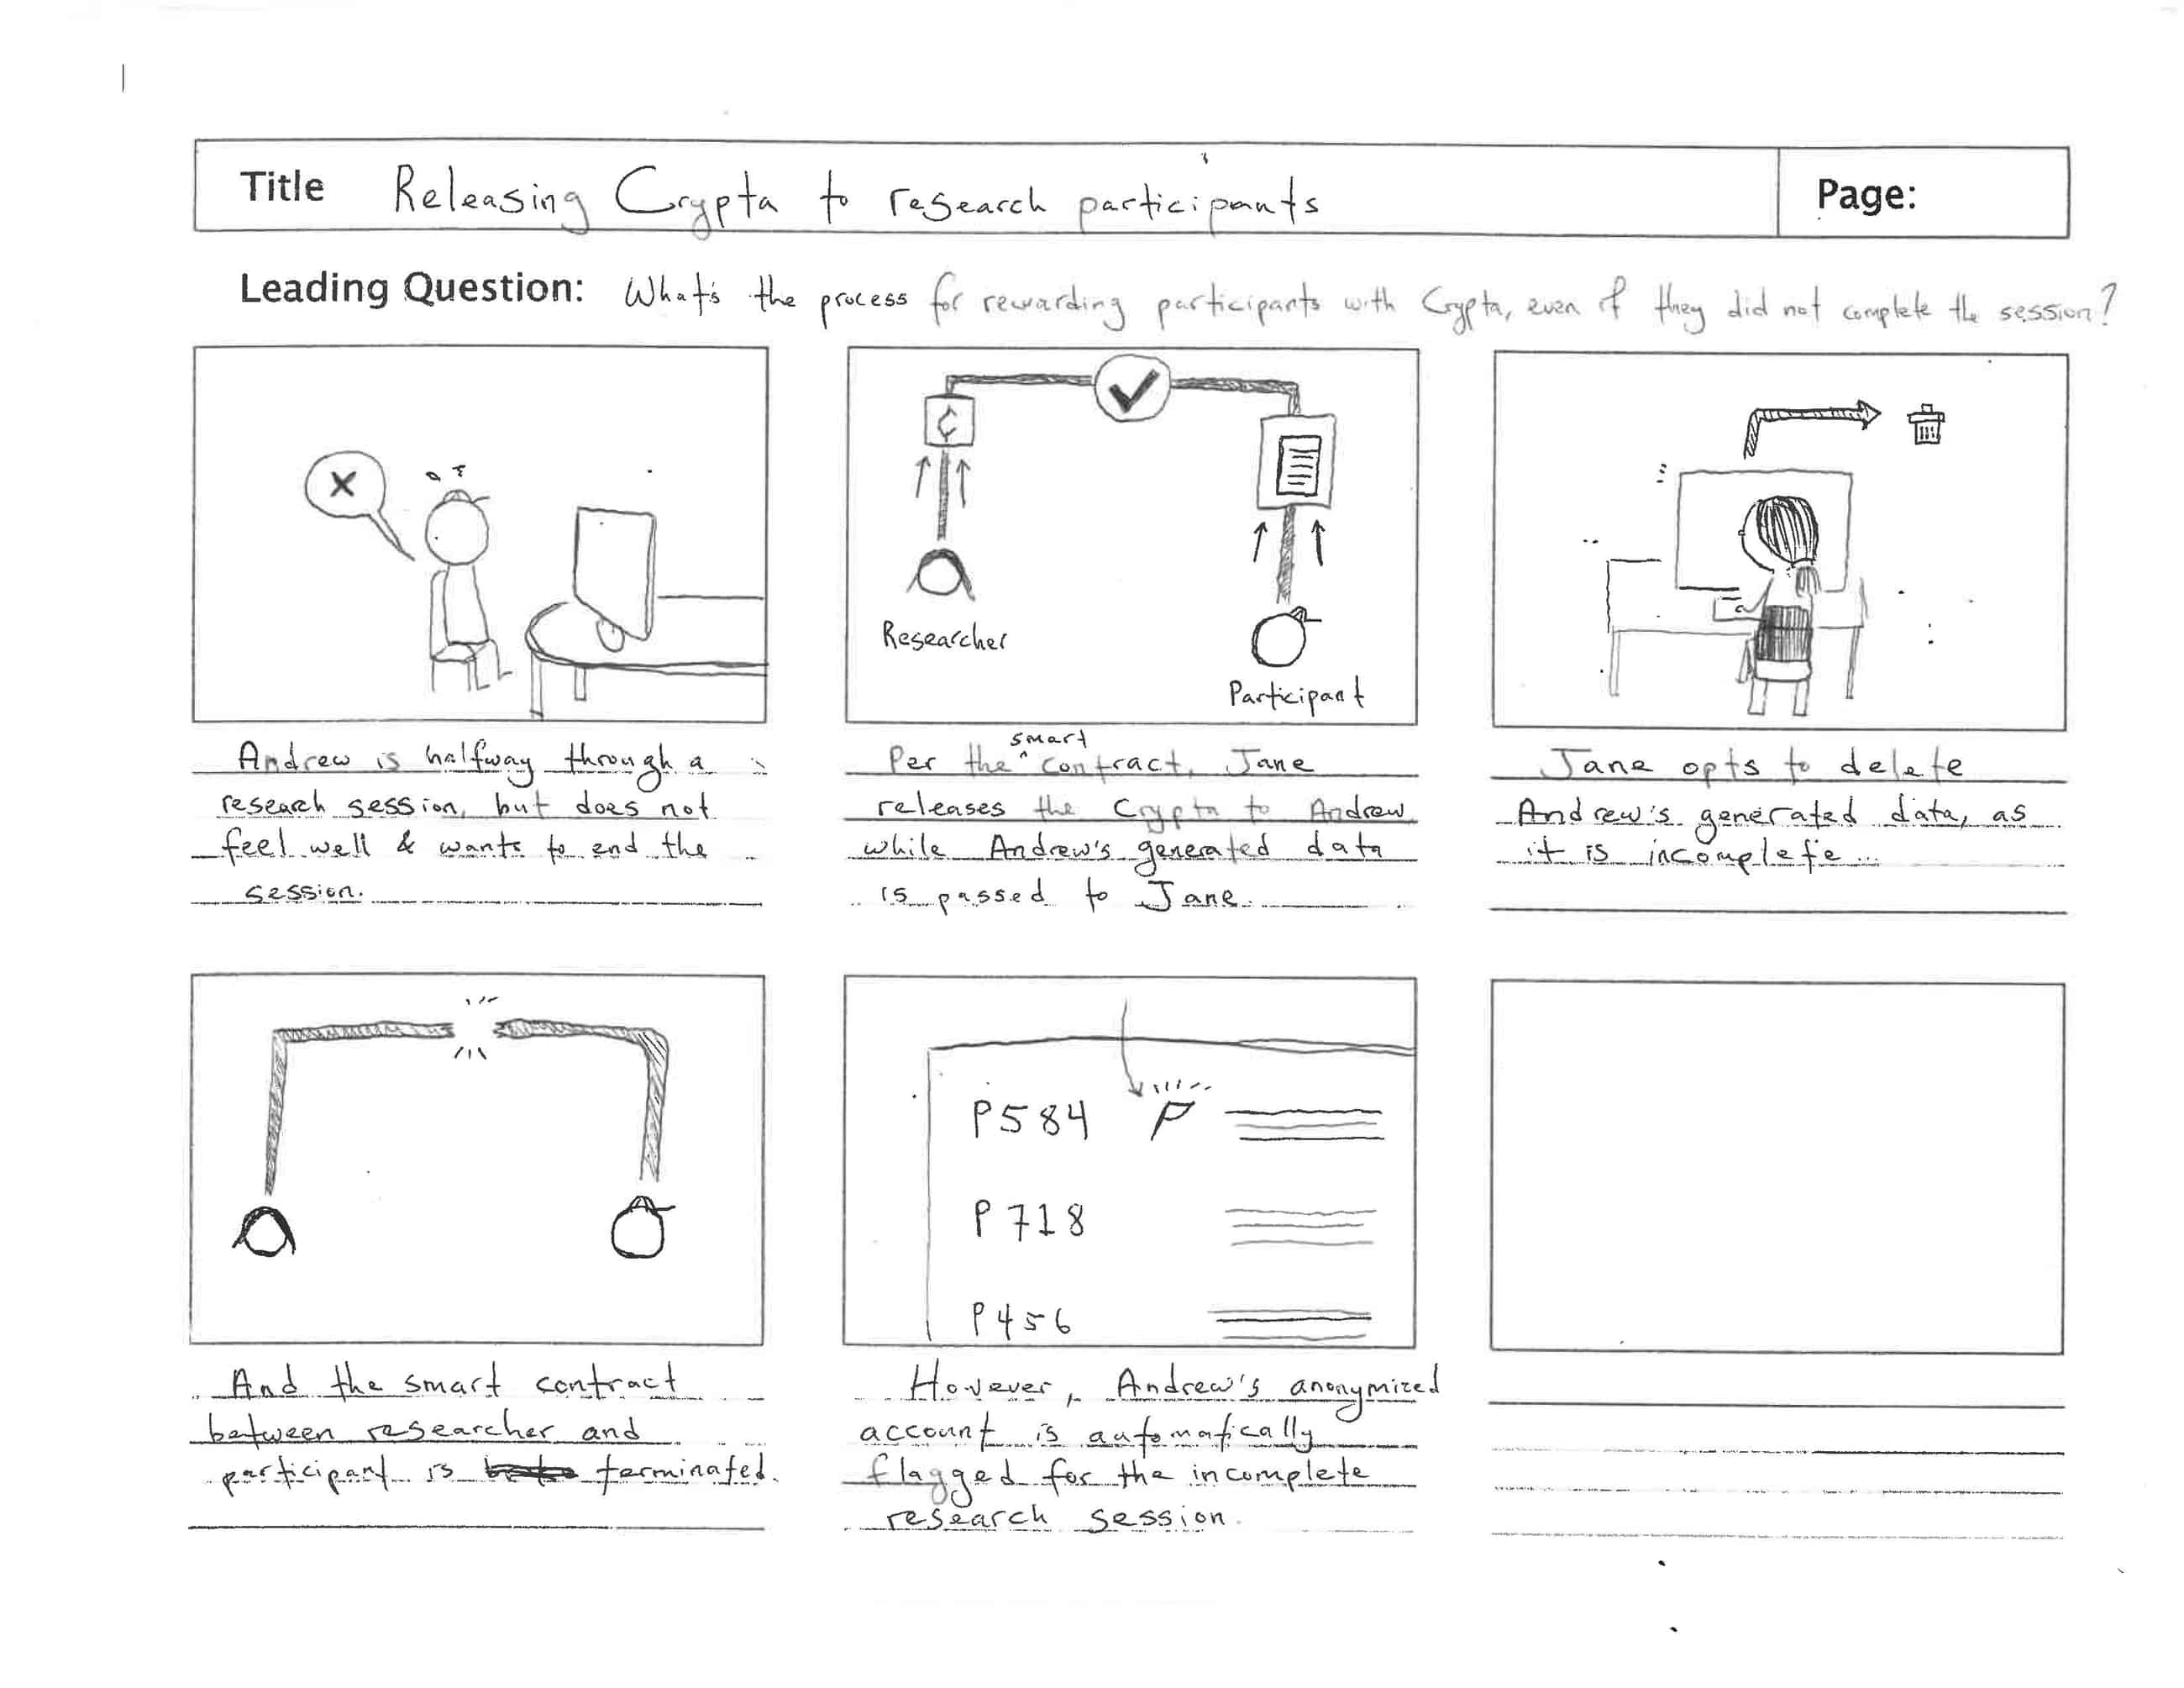 Title Releasing Crypta to research participants
Page:
Leading Question: What's the process for rewarding participants with Crypta, even if they did not complete the session?
Researcher
Participant
Andrew is halfway through a
research session, but does not
feel well & wants to end the
session.
smart
Per the ^ contract, Jane
releases the Crypta to Andrew
while Andrew's generated data
is passed to Jane
Jane opts to delete
Andrew's generated data, as
it is incomplete...
P584
P718
P456
And the smart contract
between researcher and
participant is terminated.
However, Andrew's anonymized
account is automatically
flagged for the incomplete
research session.